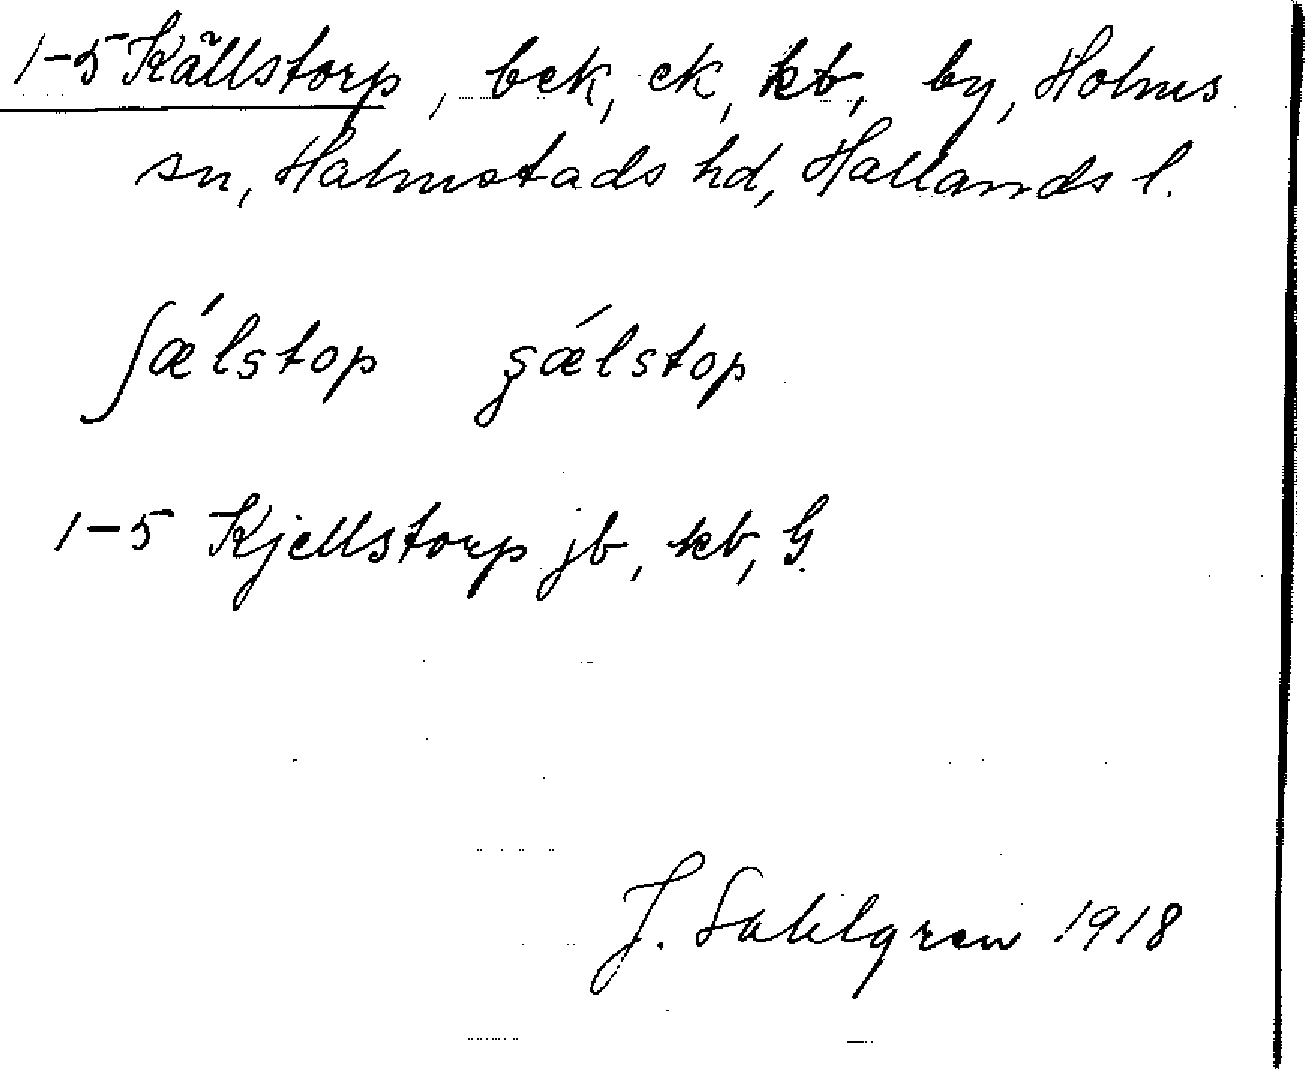 1-5 Källstorp, bek, ek, kb, by, Holms
sn, Halmstads hd, Hallands l.
ʃǽlstop şǽlstop
1-5 Kjellstorp jb, kb, G.
J. Sahlgren 1918